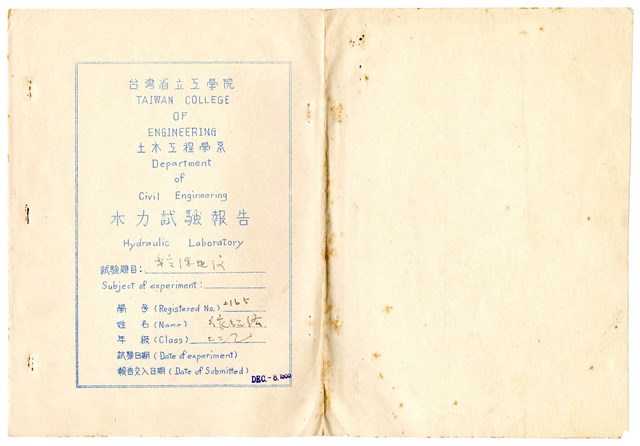 台灣省立工學院
TAIWAN COLLEGE
OF
ENGINEERING
土木工程學系
Department
of
Civil Engineering
水力試驗報告
Hydraulic Laboratory
試驗題目:
Subject of experiment:
學 号 (Registered No.) 2165
姓 名 (Name)
年 級 (Class) 土三乙
試驗日期 (Date of experiment)
報告交入日期 (Date of Submitted)
DEC.-8.